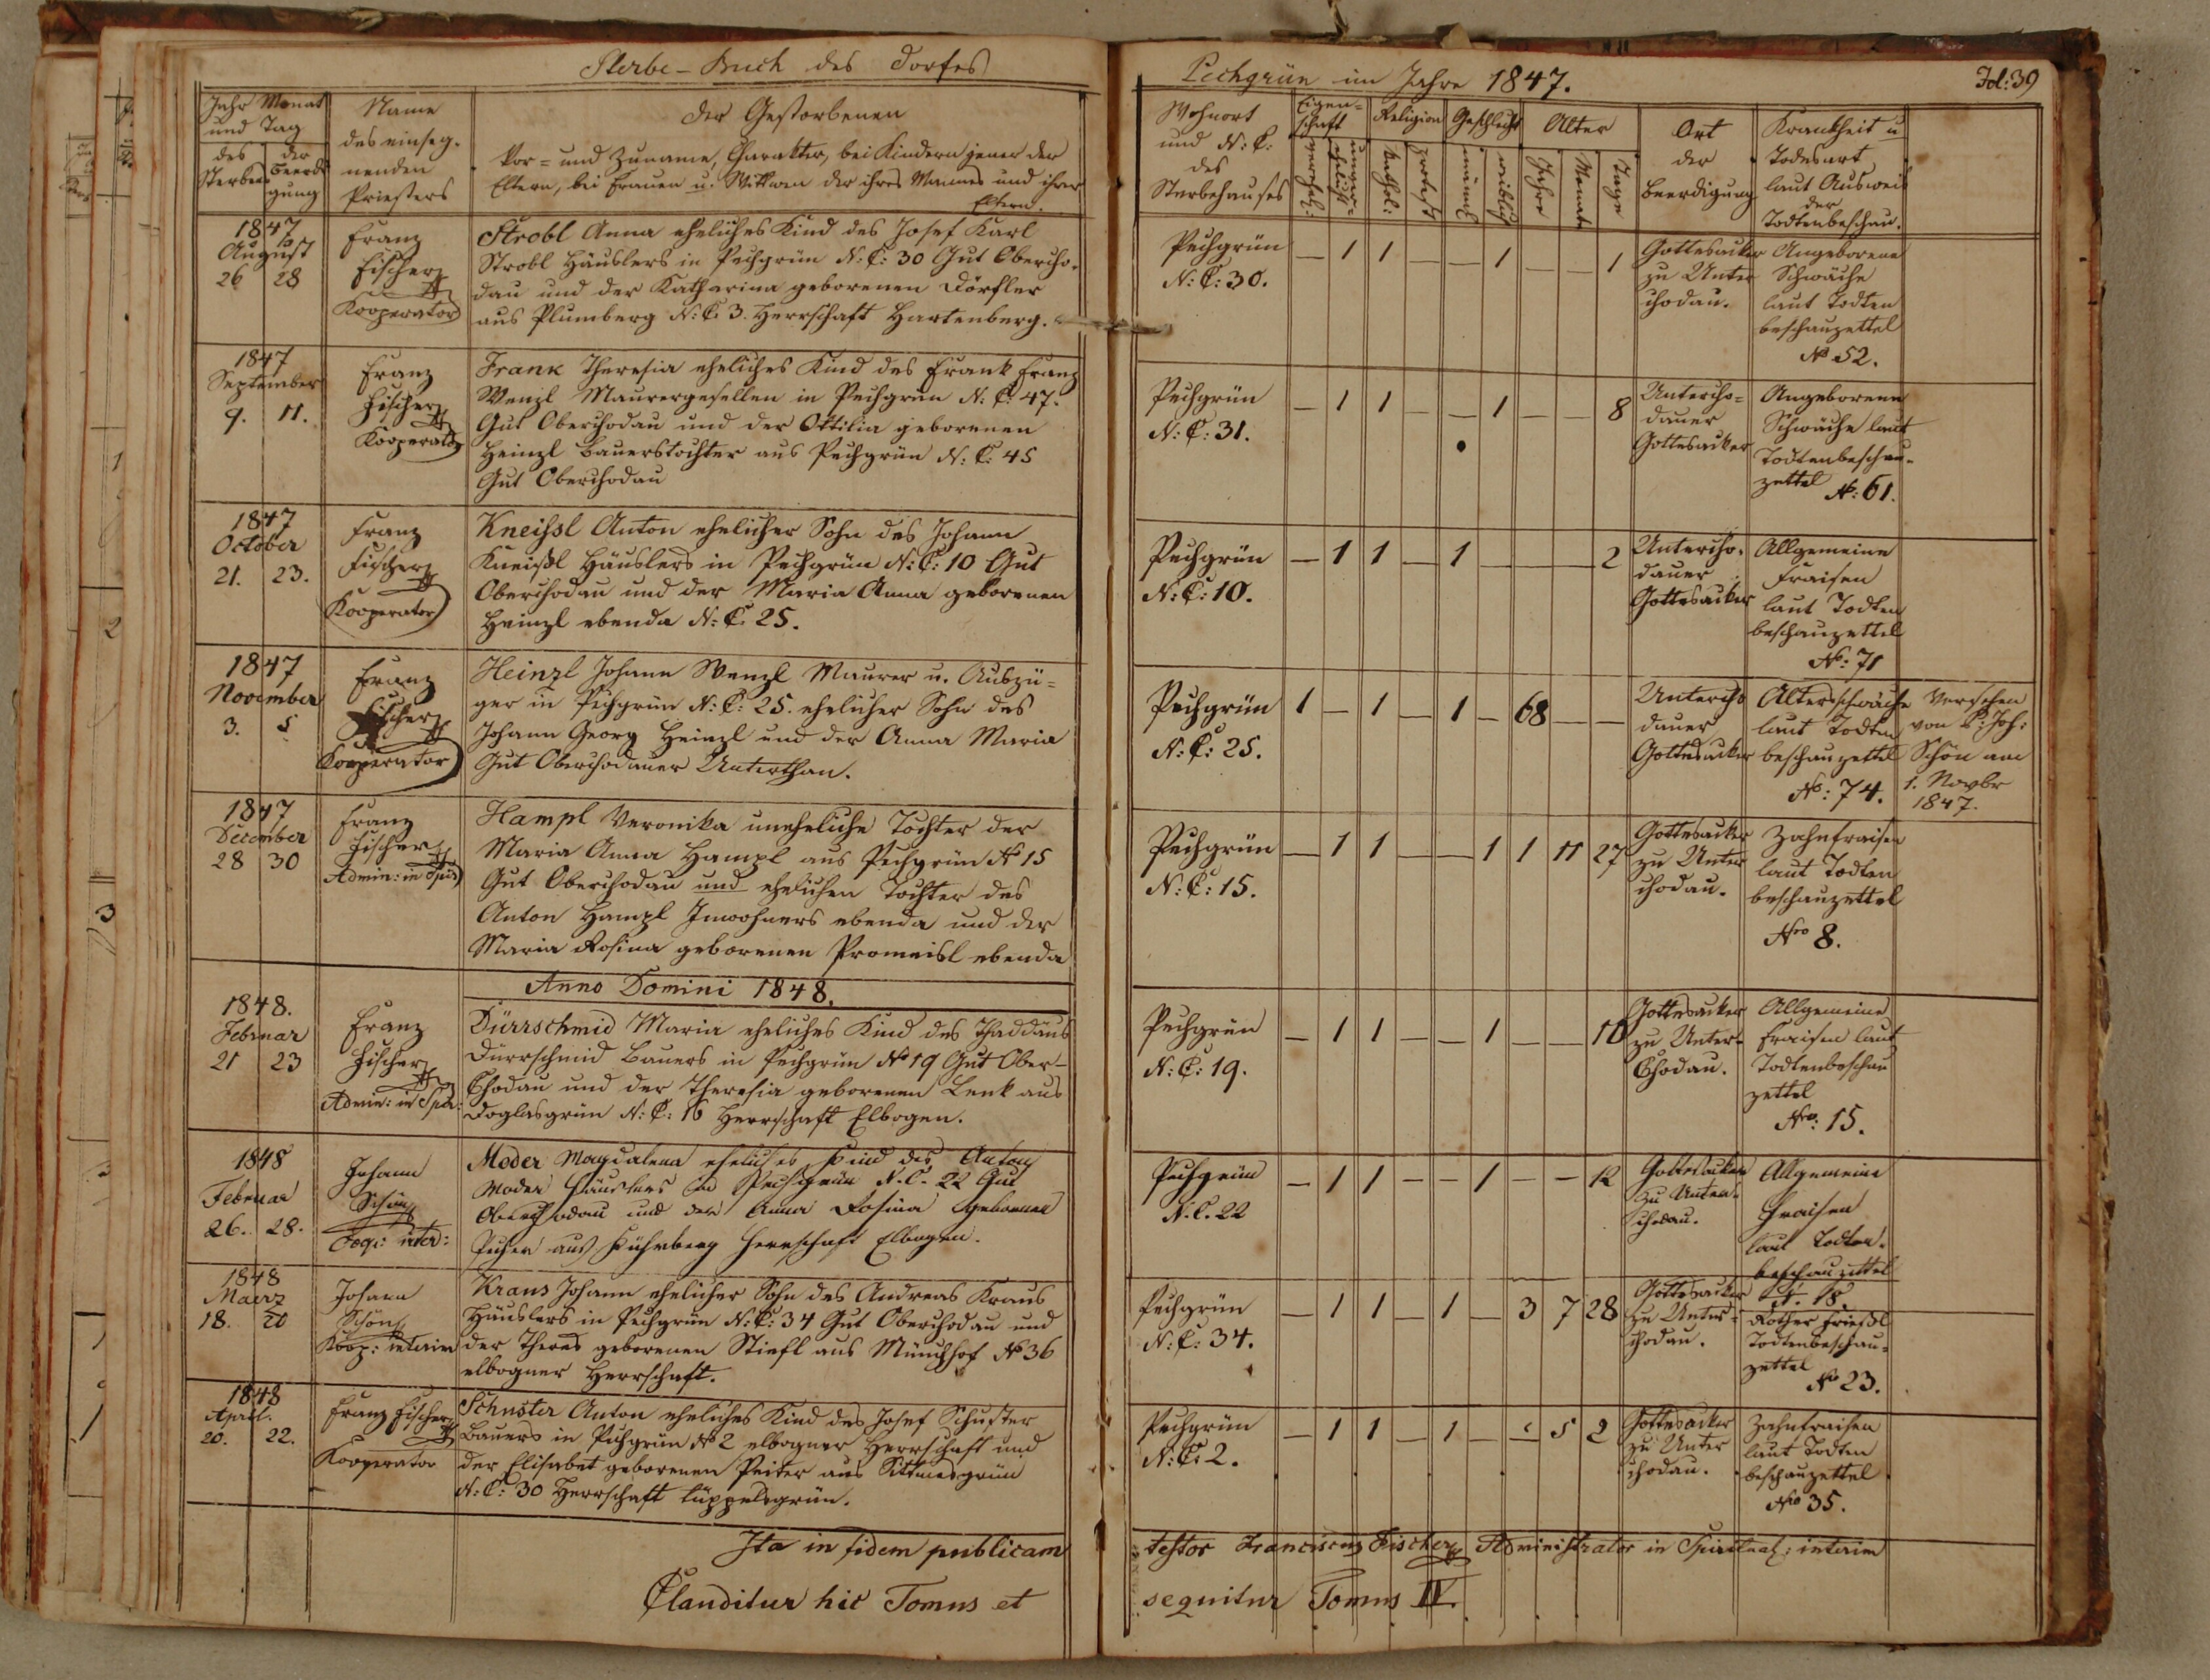 Sterbe-Buch des Dorfes
Jahr Monat
und Tag
des Sterbens
der Beerdigung
Name
des einseg-
nenden
Priesters
Der Gestorbenen
Vor- und Zuname, Charakter, bei Kindern jener der
Eltern, bei Frauen u. Wittwen der ihres Mannes und ihrer
Eltern.
1847
August
26 28
Franz
Fischer
Kooperator
Strobl Anna eheliches Kind des Josef Karl
Strobl Häuslers in Pechgrün N: C: 30 Gut Obercho-
dau und der Katharina geborenen Dörfler
aus Plumberg N: C. 3. Herrschaft Hartenberg.
1847
September
9. 11.
Franz
Fischer
Kooperator
Frank Theresia eheliches Kind des Frank Franz
Wenzl Maurergesellen in Pechgrün N: C: 47.
Gut Oberchodau und der Ottilia geborenen
Heinzl Bauerstochter aus Pechgrün N: C: 45
Gut Oberchodau
1847
October
21. 23.
Franz
Fischer
Kooperator
Kneißl Anton ehelicher Sohn des Johann
Kneißl Häuslers in Pechgrün N: C: 10 Gut
Oberchodau und der Maria Anna geborenen
Heinzl ebenda N: C. 25.
1847
November
3. 5
Franz
Fischer
Kooperator
Heinzl Johann Wenzl Maurer u. Auszü-
ger in Pechgrün N: C: 25. ehelicher Sohn des
Johann Georg Heinzl und der Anna Maria
Gut Oberchodauer Unterthan.
1847
December
28 30
Franz
Fischer
Admin: in Spir)
Hampl Veronika uneheliche Tochter der
Maria Anna Hampl aus Pechgrün No 15
Gut Oberchodau und ehelichen Tochter des
Anton Hampl Inwohners ebenda und der
Maria Rosina geborenen Promeisl ebenda
Anno Domini 1848.
1848.
Februar
21 23
Franz
Fischer
Admin: in Spir:
Dürrschmid Maria eheliches Kind des Thaddäus
Dürrschmid Bauers in Pechgrün No 19 Gut Ober-
Chodau und der Theresia geborenen Lenk aus
Doglasgrün N: C: 16 Herrschaft Elbogen.
1848
Februar
26. 28.
Johann
Schön
Coop: inter:
Moder Magdalena eheliches Kind des Anton
Moder Häuslers in Pechgrün N. C. 22 Gut
Oberchodau und der Anna Rosina geborenen
aus Herrschaft Elbogen.
1848
Maerz
18. 20
Johann
Schön
Koop: interim
Kraus Johann ehelicher Sohn des Andreas Kraus
Häuslers in Pechgrün N: C: 34 Gut Oberchodau und
der Theres geborenen Stiefl aus Münchhof No 36
elbogner Herrschaft.
1848
April.
20. 22.
Franz Fischer
Kooperator
Schuster Anton eheliches Kind des Josef Schuster
Bauers in Pechgrün No 2 elbogner Herrschaft und
der Elisabet geborenen Peiter aus Sittmesgrün
N: C: 30 Herrschaft Tüppelsgrün.
Ita in fidem publicam
Clauditur hic Tomus et
Pechgrün im Jahre 1847.
Fol: 39
Wohnort
und N: C:
des
Sterbehauses
Eigen-
schaft
verehel:
unver-
ehelicht
Religion
kathol:
protest
Geschlecht
männl
weiblich
Alter
Jahre
Monate
Tage
Ort
der
Beerdigung
Krankheit u
Todesart
laut Ausweis
der
Todtenbeschau.
Pechgrün — 1 1 — — 1 — — 1
N: C: 30.
Gottesacker
zu Unter
chodau.
Angeborene
Schwäche
laut Todten
beschauzettel
No 52.
Pechgrün — 1 1 — — 1 — — 8
N: C: 31.
Untercho-
dauer
Gottesacker
Angeborene
Schwäche laut
Todtenbeschau-
zettel No: 61.
Pechgrün — 1 1 — 1 — — — 2
N: C: 10.
Untercho-
dauer
Gottesacker
Allgemeine
Fraisen
laut Todten
beschauzettel
No: 71
Pechgrün 1 — 1 — 1 — 68 — —
N: C: 25.
Untercho
dauer
Gottesacker
Altersschwäche
laut Todten
beschauzettel
No: 74.
Versehen
von P: Joh:
Schön am
1. Novbr
1847.
Pechgrün — 1 1 — — 1 1 11 27
N: C: 15.
Gottesacker
zu Unter
chodau.
Zahnfraisen
laut Todten
beschauzettel
Nro 8.
Pechgrün — 1 1 — — 1 — — 10
N: C: 19.
Gottesacker
zu Unter-
Chodau.
Allgemeine
Fraisen laut
Todtenbeschau
zettel
Nro: 15.
Pechgrün — 1 1 — — 1 — — 12
N. C. 22
Gottesacker
zu Unter-
chodau.
Allgemeine
Fraisen
laut Todten-
beschauzettel
18.
Pechgrün — 1 1 — 1 — 3 7 28
N: C: 34.
Gottesacker
zu Unter-
chodau.
Rother Frießl
Todtenbeschau-
zettel
No 23.
Pechgrün — 1 1 — 1 — 5 2
N: C: 2.
Gottesacker
zu Unter
chodau.
Zahnfraisen
laut Todten
beschauzettel
Nro 35.
testor Franciscus Fischer Administrator in Spiritual: interim
sequitur Tomus IV.